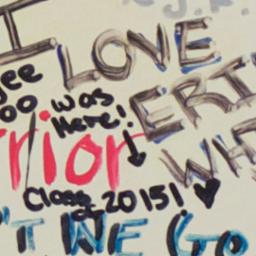 I LOVE
ERI
was
Here!
WH
rior
Class of 2015!
'T WE GO